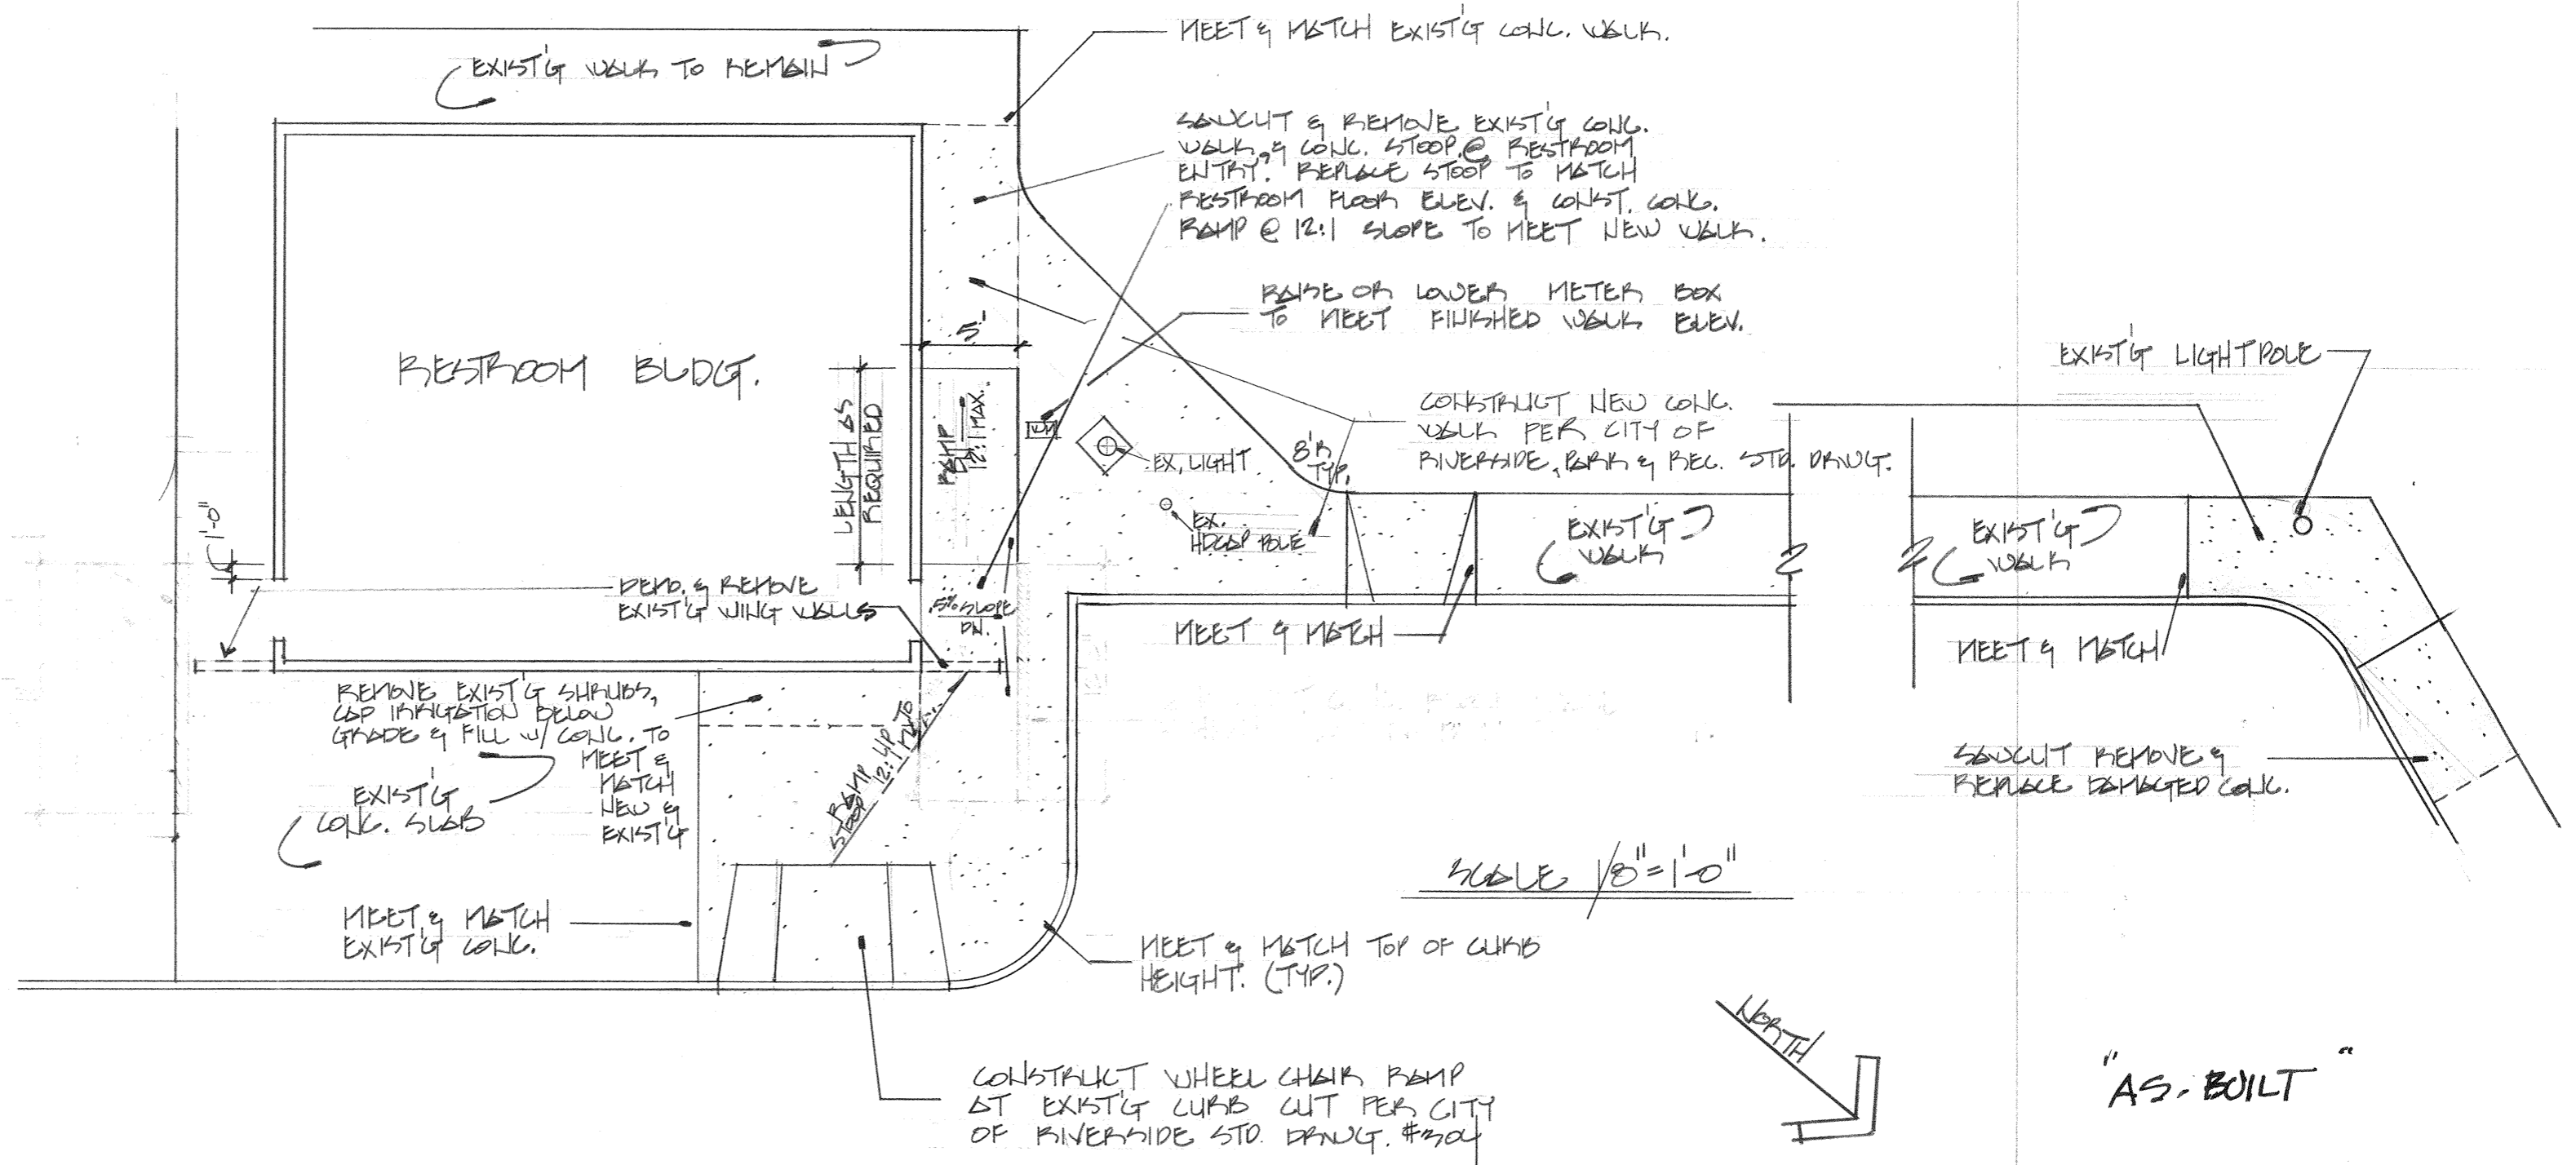 MEET & MATCH EXIST'G CONC. WALK.
EXIST'G WALK TO REMAIN
SAWCUT & REMOVE EXIST'G CONC.
WALK, & CONC. STOOP @ RESTROOM
ENTRY. REPLACE STOOP TO MATCH
RESTROOM FLOOR ELEV. & CONST. CONC.
RAMP @ 12:1 SLOPE TO MEET NEW WALK.
RAISE OR LOWER METER BOX
TO MEET FINISHED WALK ELEV.
5'
RESTROOM BLDG.
LENGTH AS
REQUIRED
RAMP
12:1 MAX.
WM
EX. LIGHT
EX.
HDCAP POLE
8'R
TYP.
CONSTRUCT NEW CONC.
WALK PER CITY OF
RIVERSIDE, PARK & REC. STD. DRWG.
EXIST'G LIGHT POLE
EXIST'G
WALK
EXIST'G
WALK
1'-0"
DEMO. & REMOVE
EXIST'G WING WALLS
.5% SLOPE
DN.
MEET & MATCH
MEET & MATCH
REMOVE EXIST'G SHRUBS,
CAP IRRIGATION BELOW
GRADE & FILL W/ CONC. TO
MEET &
MATCH
NEW &
EXIST'G
EXIST'G
CONC. SLAB
RAMP 12:1 UP
STOOP
TO
SAWCUT REMOVE &
REPLACE DAMAGED CONC.
SCALE 1/8"=1'-0"
MEET & MATCH
EXIST'G CONC.
MEET & MATCH TOP OF CURB
HEIGHT. (TYP.)
NORTH
CONSTRUCT WHEEL CHAIR RAMP
AT EXIST'G CURB CUT PER CITY
OF RIVERSIDE STD. DRWG. #304
"AS-BUILT"